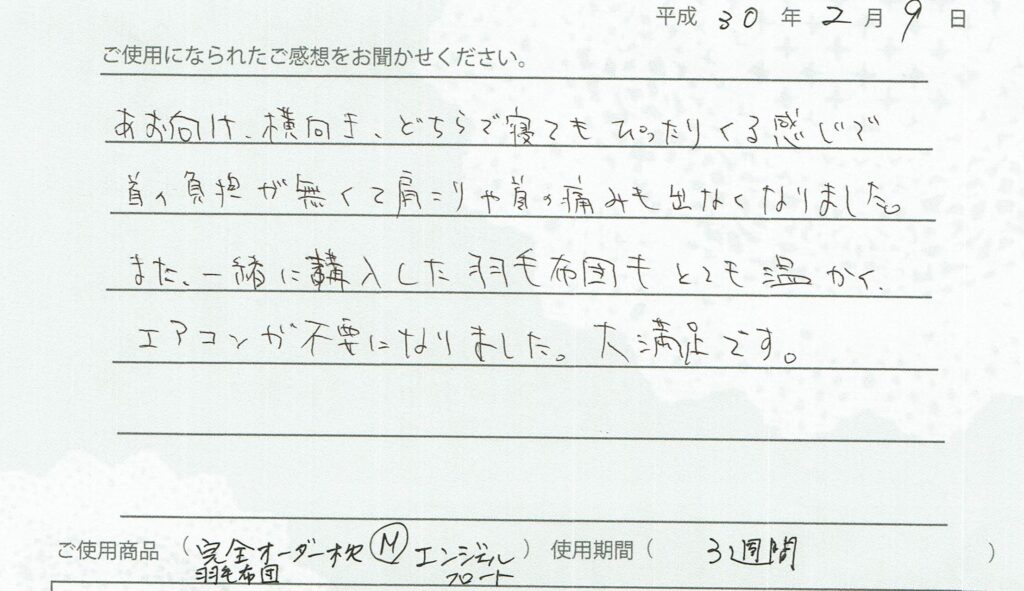 平成 30 年 2 月 9 日
ご使用になられたご感想をお聞かせください。
あお向け、横向き、どちらで寝てもぴったりくる感じで
首の負担が無くて肩こりや首の痛みも出なくなりました。
また、一緒に購入した羽毛布団もとても温かく、
エアコンが不要になりました。大満足です。
ご使用商品 (完全オーダー枕 Ⓜ エンジェル) 使用期間 ( 3週間 )
羽毛布団 フロート